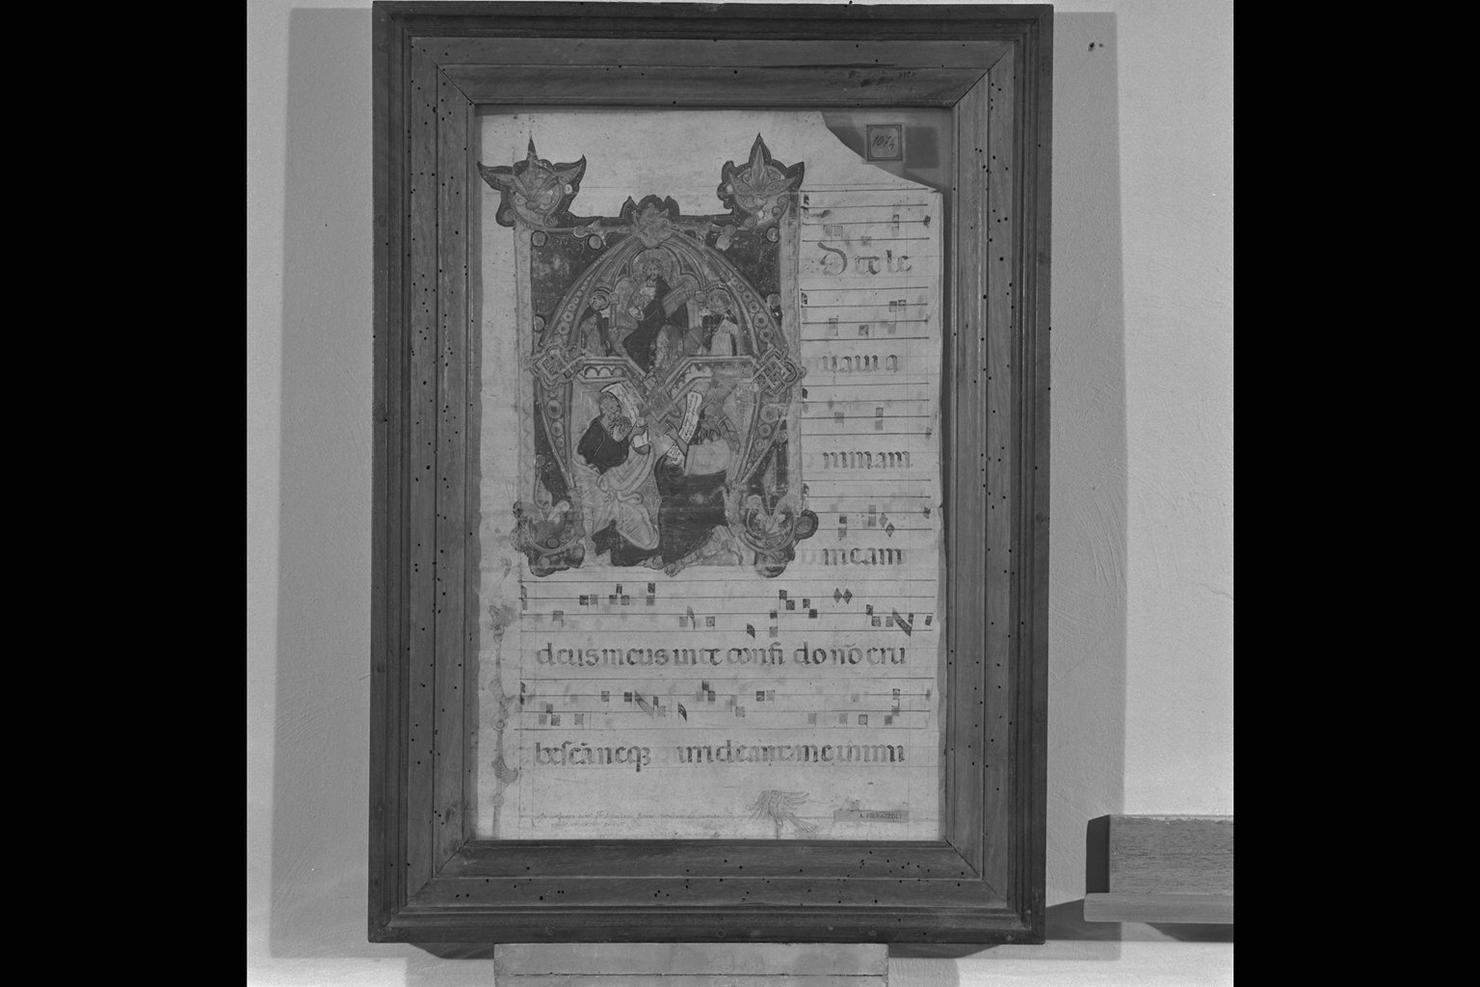 1074
D te le
uaui a
nimam
meam
deus meus in te confi do nō eru
bescā neqꝫ irrideant me inimi
A. PIERAZZOLI